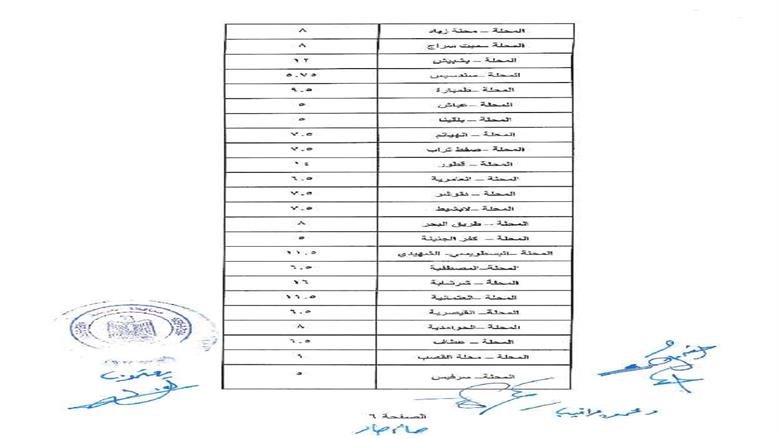 المحلة – محلة زياد ٨
المحلة – ميت سراج ٨
المحلة – بشبيش ١٢
المحلة – سندسيس ٥.٧٥
المحلة – طمبارة ٩.٥
المحلة – عياش ٥
المحلة – بلقينا ٥
المحلة – الهياتم ٧.٥
المحلة – صفط تراب ٧.٥
المحلة – قطور ١٤
المحلة – العامرية ٦.٥
المحلة – دنوشر ٧.٥
المحلة – لابشيط ٧.٥
المحلة – طريق البحر ٨
المحلة – كفر الجنينة ٥
المحلة – البسطويسي – الشهيدي ١١.٥
المحلة – المصطفية ٦.٥
المحلة – شرشابة ١٦
المحلة – العثمانية ١١.٥
المحلة – القيصرية ٦.٥
المحلة – الحوامدية ٨
المحلة – عطاف ٦.٥
المحلة – محلة القصب ٦
المحلة – سرفيس ٥
الصفحة ٦